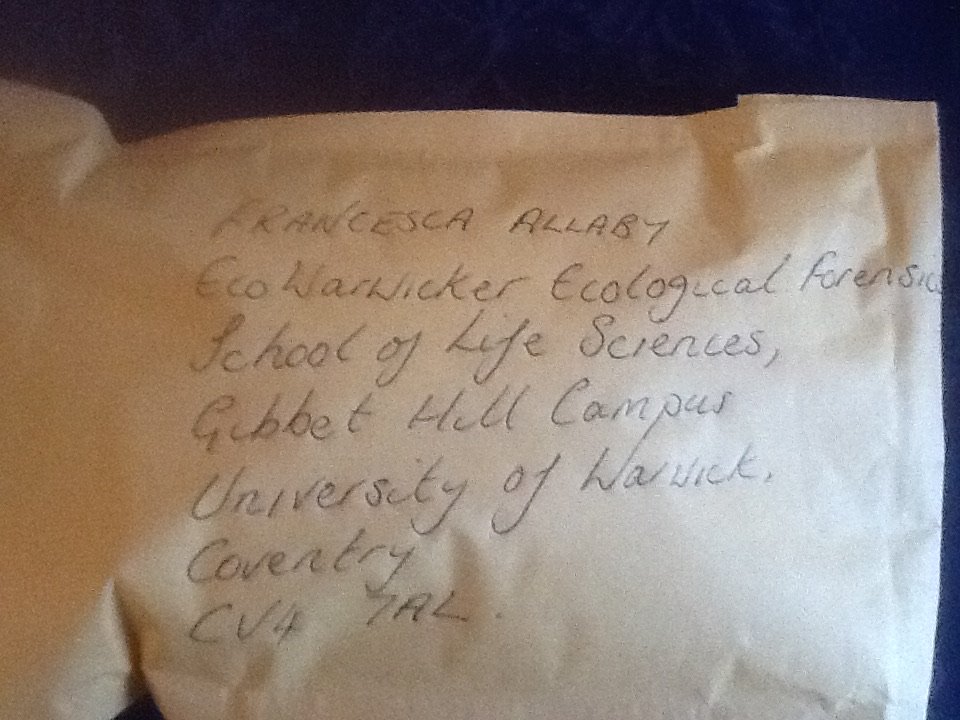 FRANCESCA ALLABY
EcoWarwicker Ecological Forensics
School of Life Sciences,
Gibbet Hill Campus
University of Warwick.
Coventry
CV4 7AL.